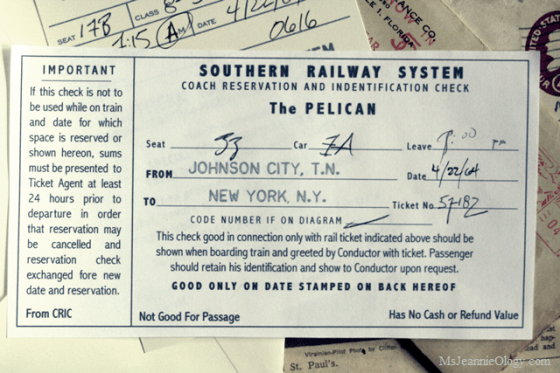 SEAT 178
CLASS
DATE 4/22/
7:15 AM
0616
ANCE CO.
LE 1, FLORIDA
IMPORTANT
If this check is not to
be used while on train
and date for which
space is reserved or
shown hereon, sums
must be presented to
Ticket Agent at least
24 hours prior to
departure in order
that reservation may
be cancelled and
reservation check
exchanged fore new
date and reservation.
From CRIC
SOUTHERN RAILWAY SYSTEM
COACH RESERVATION AND INDENTIFICATION CHECK
The PELICAN
Seat 33 Car Leave 9:00 PM
FROM JOHNSON CITY, T.N. Date 4/22/64
TO NEW YORK, N.Y. Ticket No. 57182
CODE NUMBER IF ON DIAGRAM
This check good in connection only with rail ticket indicated above should be
shown when boarding train and greeted by Conductor with ticket. Passenger
should retain his identification and show to Conductor upon request.
GOOD ONLY ON DATE STAMPED ON BACK HEREOF
Not Good For Passage Has No Cash or Refund Value
Virginian-Pilot Photo by
St. Paul's.
MsJeannieOlogy.com